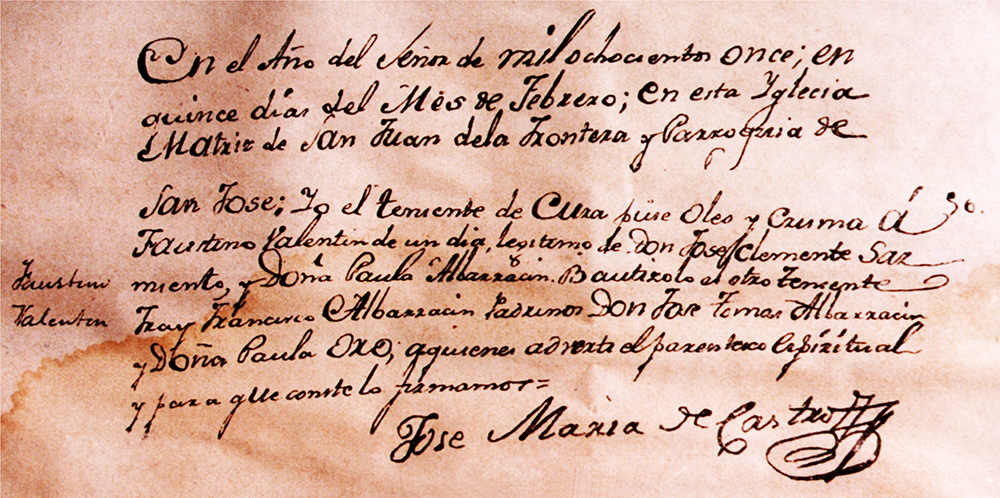 En el Año del Señor de mil ochocientos once; en
quince días del Mês de Febrero; en esta Yglecia
Matriz de San Juan dela Frontera y Parroquia de
San Jose; Yo el teniente de Cura puse Oleo y Crisma á
Faustino Valentin de un dia, legitimo de Don Jose Clemente Sar
miento, y Doña Paula Albarracin. Bautizolo el otro teniente
Faustino
Valentin
Fray Francisco Albarracin Padrinos Don Jose Tomas Albarracin
y Doña Paula Oro; aquienes advertí el parentesco Espiritual
y para que conste lo firmamos=
Jose Maria de Castro